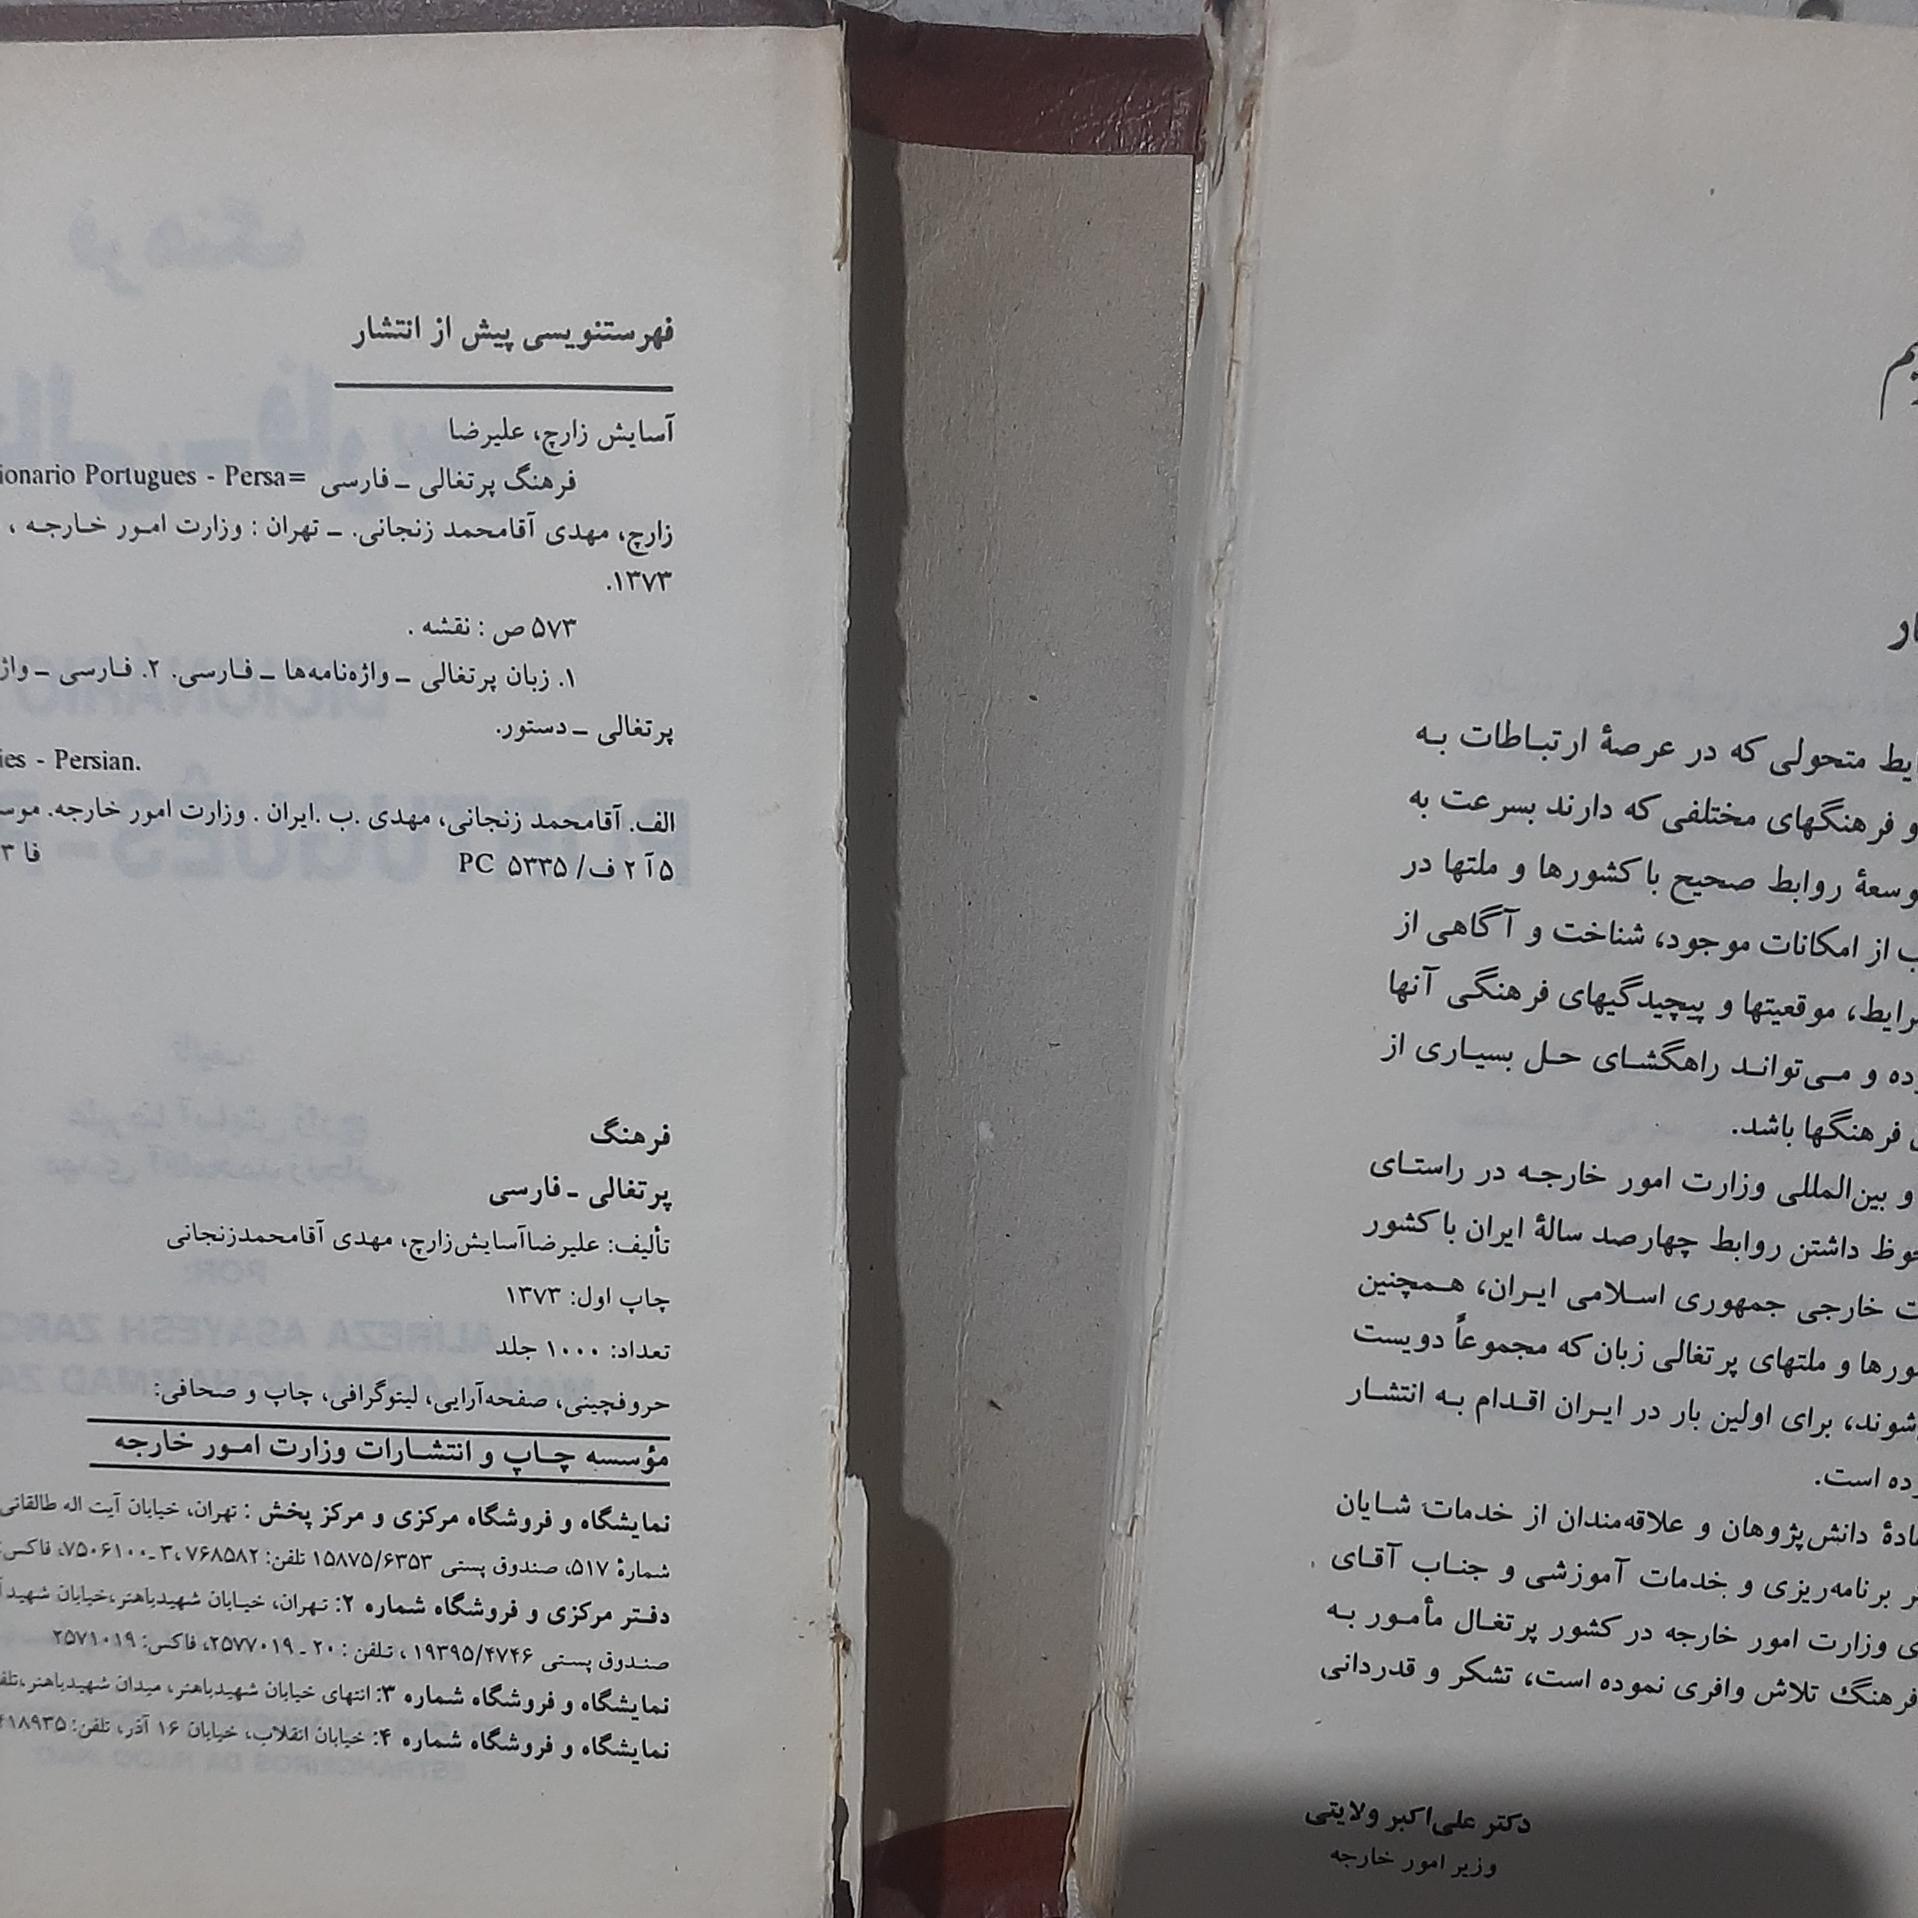 فهرستنویسی پیش از انتشار
آسایش زارچ، علیرضا
فرهنگ پرتغالی ـ فارسی =ionario Portugues - Persa
زارچ، مهدی آقامحمد زنجانی. ـ تهران : وزارت امور خارجه ،
۱۳۷۳.
۵۷۳ ص : نقشه .
۱. زبان پرتغالی ـ واژه‌نامه‌ها ـ فارسی. ۲. فارسی ـ واژ
پرتغالی ـ دستور.
ies - Persian.
الف. آقامحمد زنجانی، مهدی .ب .ایران . وزارت امور خارجه. موس
۵ آ ۲ ف/ ۵۳۳۵ PC فا ۳
فرهنگ
پرتغالی ـ فارسی
تألیف: علیرضاآسایش‌زارچ، مهدی آقامحمدزنجانی
چاپ اول: ۱۳۷۳
تعداد: ۱۰۰۰ جلد
حروفچینی، صفحه‌آرایی، لیتوگرافی، چاپ و صحافی:
مؤسسه چاپ و انتشارات وزارت امور خارجه
نمایشگاه و فروشگاه مرکزی و مرکز پخش : تهران، خیابان آیت اله طالقانی
شمارهٔ ۵۱۷، صندوق پستی ۱۵۸۷۵/۶۳۵۳ تلفن: ۷۶۸۵۸۲ ،۳ ـ۷۵۰۶۱۰۰، فاکس:
دفتر مرکزی و فروشگاه شماره ۲: تهران، خیابان شهیدباهنر،خیابان شهید
صندوق پستی ۱۹۳۹۵/۴۷۴۶ ، تلفن : ۲۰ ـ ۲۵۷۷۰۱۹، فاکس: ۲۵۷۱۰۱۹
نمایشگاه و فروشگاه شماره ۳: انتهای خیابان شهیدباهنر، میدان شهیدباهنر،تلف
نمایشگاه و فروشگاه شماره ۴: خیابان انقلاب، خیابان ۱۶ آذر، تلفن: ۴۱۸۹۳۵
یم
ار
ایط متحولی که در عرصهٔ ارتباطات به
و فرهنگهای مختلفی که دارند بسرعت به
وسعهٔ روابط صحیح با کشورها و ملتها در
ب از امکانات موجود، شناخت و آگاهی از
رایط، موقعیتها و پیچیدگیهای فرهنگی آنها
ده و می‌تواند راهگشای حل بسیاری از
فرهنگها باشد.
و بین‌المللی وزارت امور خارجه در راستای
حوظ داشتن روابط چهارصد سالهٔ ایران با کشور
ت خارجی جمهوری اسلامی ایران، همچنین
ورها و ملتهای پرتغالی زبان که مجموعاً دویست
شوند، برای اولین بار در ایران اقدام به انتشار
ده است.
ادهٔ دانش‌پژوهان و علاقه‌مندان از خدمات شایان
ر برنامه‌ریزی و خدمات آموزشی و جناب آقای
ی وزارت امور خارجه در کشور پرتغال مأمور به
فرهنگ تلاش وافری نموده است، تشکر و قدردانی
دکتر علی‌اکبر ولایتی
وزیر امور خارجه